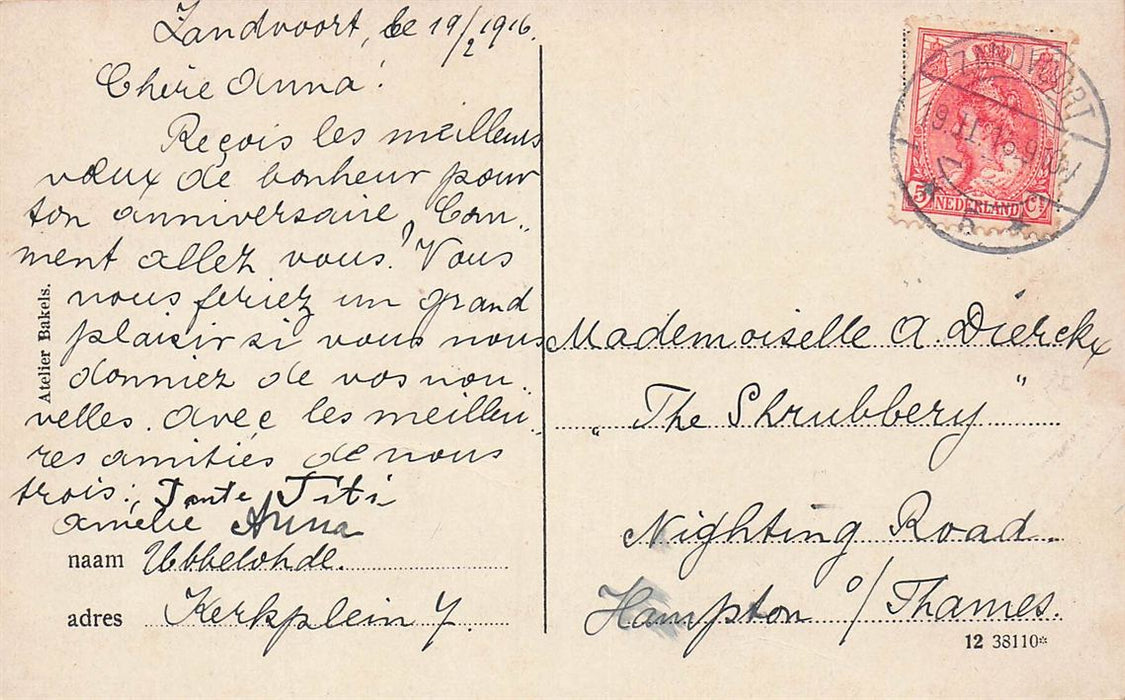 Zandvoort, le 19/2 1916.
Chère Anna!
Reçois les meilleurs
vœux de bonheur pour
ton anniversaire, Com-
ment allez vous? Vous
nous feriez un grand
plaisir si vous nous
donniez de vos nou-
velles. Avec les meilleu-
res amitiés de nous
trois: Tante Titi
Amélie Anna
naam Ubbelohde.
adres Kerkplein 7.
Atelier Bakels.
ZANDVOORT
5 NEDERLAND Ct
Mademoiselle A. Dierckx
„The Shrubbery"
Nighting Road.
Hampton o/Thames.
12 38110*